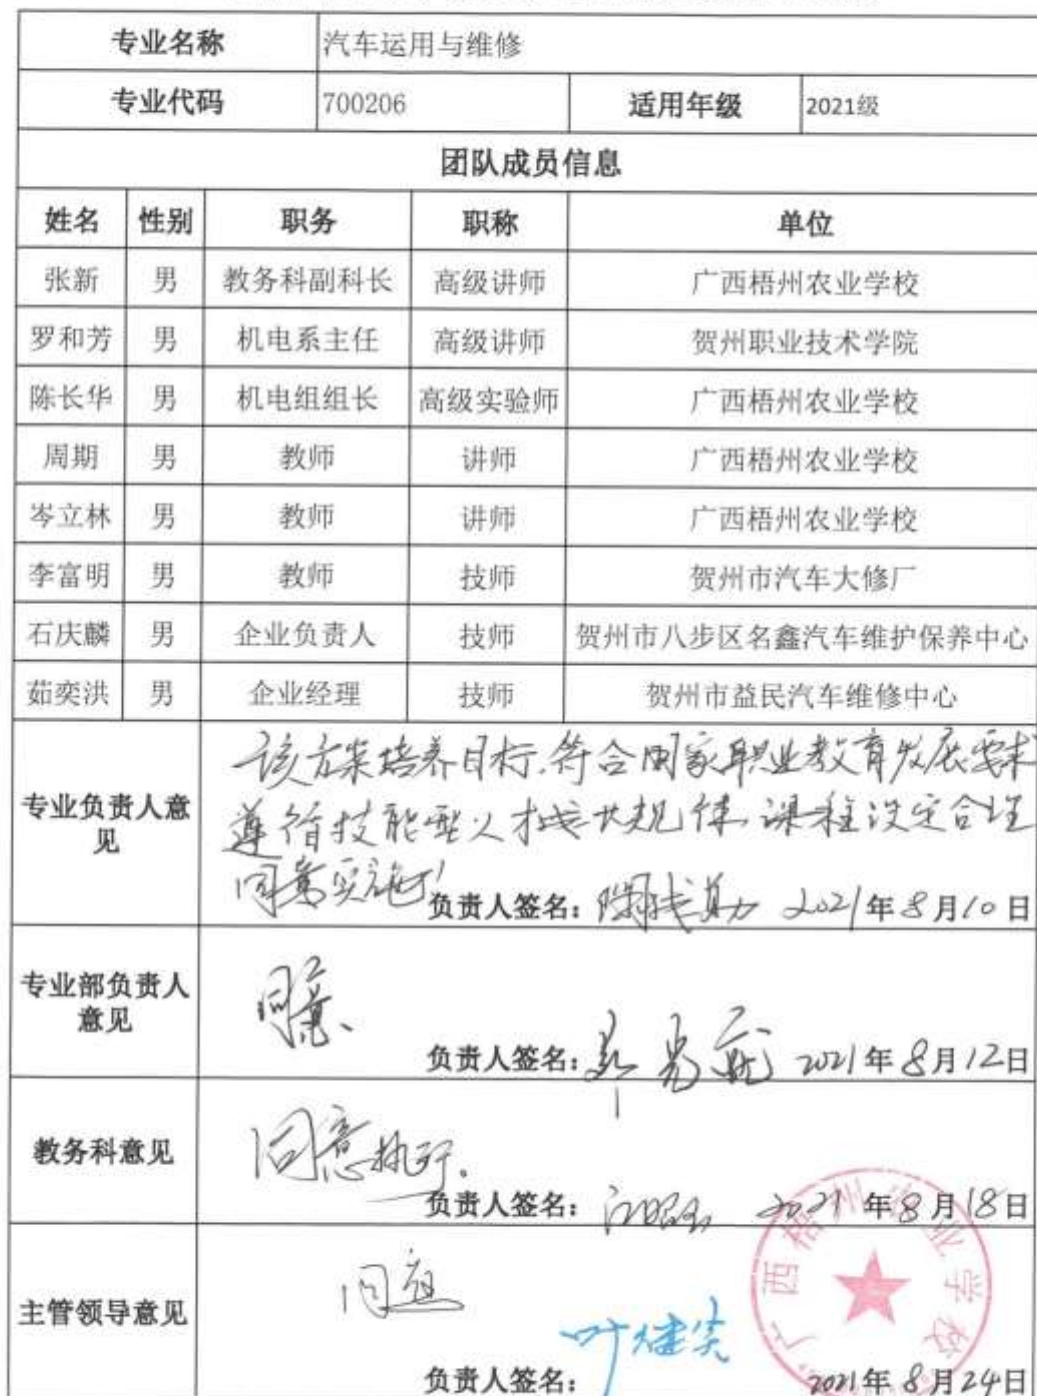 专业名称 汽车运用与维修
专业代码 700206 适用年级 2021级
团队成员信息
姓名 性别 职务 职称 单位
张新 男 教务科副科长 高级讲师 广西梧州农业学校
罗和芳 男 机电系主任 高级讲师 贺州职业技术学院
陈长华 男 机电组组长 高级实验师 广西梧州农业学校
周期 男 教师 讲师 广西梧州农业学校
岑立林 男 教师 讲师 广西梧州农业学校
李富明 男 教师 技师 贺州市汽车大修厂
石庆麟 男 企业负责人 技师 贺州市八步区名鑫汽车维护保养中心
茹奕洪 男 企业经理 技师 贺州市益民汽车维修中心
专业负责人意见
该方案培养目标,符合国家职业教育发展要求
遵循技能型人才成长规律,课程设定合理
同意实施!
负责人签名: 2021年8月10日
专业部负责人意见
同意、
负责人签名: 2021年8月12日
教务科意见
同意执行。
负责人签名: 2021年8月18日
主管领导意见
同意
负责人签名: 2021年8月24日
广西梧州农业学校